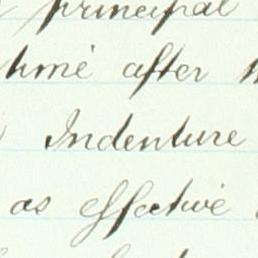 principal
time after
Indenture
as effective